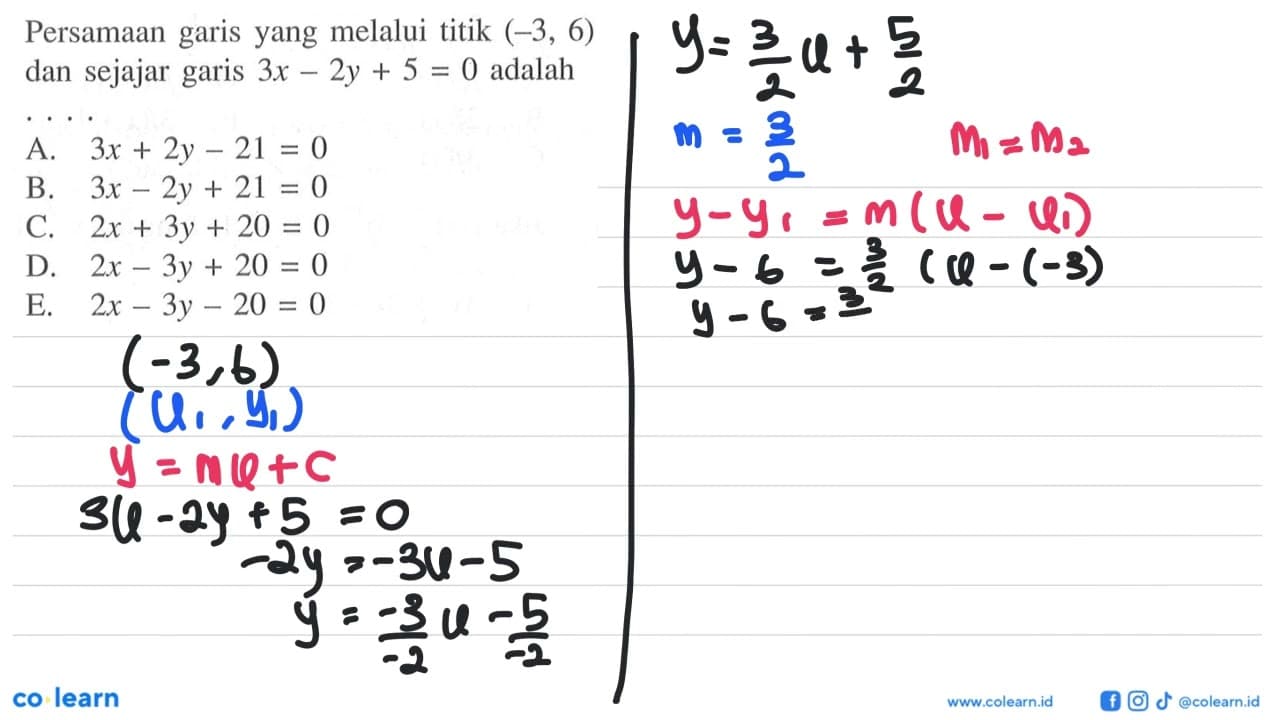 Persamaan garis yang melalui titik (–3, 6)
dan sejajar garis 3x – 2y + 5 = 0 adalah
. . . .
A. 3x + 2y – 21 = 0
B. 3x – 2y + 21 = 0
C. 2x + 3y + 20 = 0
D. 2x – 3y + 20 = 0
E. 2x – 3y – 20 = 0
(-3,6)
(x₁, y₁)
y = mx+c
3x -2y +5 =0
-2y =-3x-5
y = -3/-2 x -5/-2
y= 3/2 x + 5/2
m = 3/2
m₁=m₂
y-y₁ =m(x - x₁)
y-6 = 3/2 (x-(-3)
y-6=3
co learn
www.colearn.id
@colearn.id